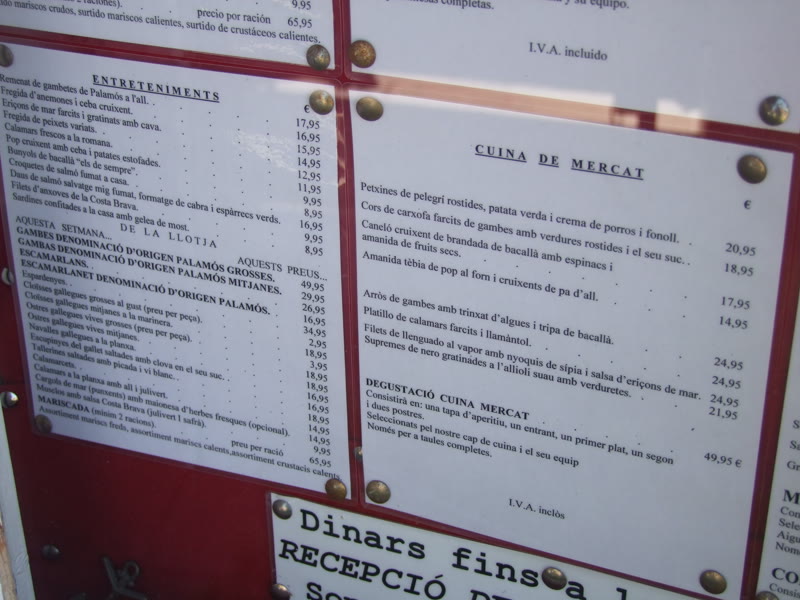 9,95
precio por ración 65,95
mariscos crudos, surtido mariscos calientes, surtido de crustáceos calientes.
completas.
y su equipo.
I.V.A. incluido
ENTRETENIMENTS
€
Remenat de gambetes de Palamós a l'all. 17,95
Fregida d'anemones i ceba cruixent. 16,95
Eriçons de mar farcits i gratinats amb cava. 15,95
Fregida de peixets variats. 14,95
Calamars frescos a la romana. 12,95
Pop cruixent amb ceba i patates estofades. 11,95
Bunyols de bacallà "els de sempre". 9,95
Croquetes de salmó fumat a casa. 8,95
Daus de salmó salvatge mig fumat, formatge de cabra i espàrrecs verds. 16,95
Filets d'anxoves de la Costa Brava. 9,95
Sardines confitades a la casa amb gelea de most. 8,95
DE LA LLOTJA
AQUESTA SETMANA... AQUESTS PREUS...
GAMBES DENOMINACIÓ D'ORIGEN PALAMÓS GROSSES. 49,95
GAMBAS DENOMINACIÓ D'ORIGEN PALAMÓS MITJANES. 29,95
ESCAMARLANS. 26,95
ESCAMARLANET DENOMINACIÓ D'ORIGEN PALAMÓS. 16,95
Espardenyes. 34,95
Cloïsses gallegues grosses al gust (preu per peça). 2,95
Cloïsses gallegues mitjanes a la marinera. 18,95
Ostres gallegues vives grosses (preu per peça). 3,95
Ostres gallegues vives mitjanes. 18,95
Navalles gallegues a la planxa. 18,95
Escupinyes del gallet saltades amb clova en el seu suc. 16,95
Tallerines saltades amb picada i vi blanc. 16,95
Calamarcets. 18,95
Calamars a la planxa amb all i julivert. 14,95
Cargols de mar (punxents) amb maionesa d'herbes fresques (opcional). 14,95
Musclos amb salsa Costa Brava (julivert I safrà). 9,95
MARISCADA (mínim 2 racions). preu per ració 65,95
Assortiment mariscs freds, assortiment mariscs calents,assortiment crustacis calents
CUINA DE MERCAT
€
Petxines de pelegrí rostides, patata verda i crema de porros i fonoll. 20,95
Cors de carxofa farcits de gambes amb verdures rostides i el seu suc. 18,95
Caneló cruixent de brandada de bacallà amb espinacs i
amanida de fruits secs. 17,95
Amanida tèbia de pop al forn i cruixents de pa d'all. 14,95
Arròs de gambes amb trinxat d'algues i tripa de bacallà. 24,95
Platillo de calamars farcits i llamàntol. 24,95
Filets de llenguado al vapor amb nyoquis de sípia i salsa d'eriçons de mar. 24,95
Supremes de nero gratinades a l'allioli suau amb verduretes. 21,95
DEGUSTACIÓ CUINA MERCAT
Consistirà en: una tapa d'aperitiu, un entrant, un primer plat, un segon
i dues postres. 49,95 €
Seleccionats pel nostre cap de cuina i el seu equip
Només per a taules completes.
I.V.A. inclòs
Dinars fins a
RECEPCIÓ